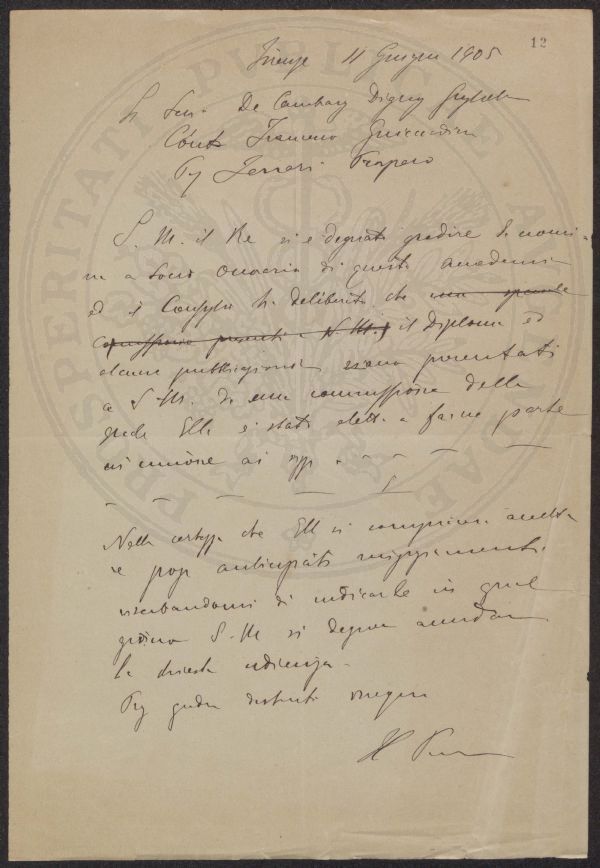 12
Firenze 11 Giugno 1905
De Cambray Digny
Conte Francesco Guicciardini
Ferrari Prospero
S. M. il Re si è degnato gradire la nomi-
na a Socio Onorario di questa Accademia
ed il Consiglio ha deliberato che una speciale
presenti a S. M. il Diploma ed
alcune pubblicazioni siano presentati
a S. M. da una commissione della
quale Ella è stata eletta a farne parte
in unione ai Sigg.
Nella certezza che Ella si compiacerà accettare
anticipati ringraziamenti
riserbandomi di indicarle in qual
giorno S. M. si degnerà accordare
la chiesta udienza.
Il Pres
PROSPERITATI PUBLICAE AUGENDAE